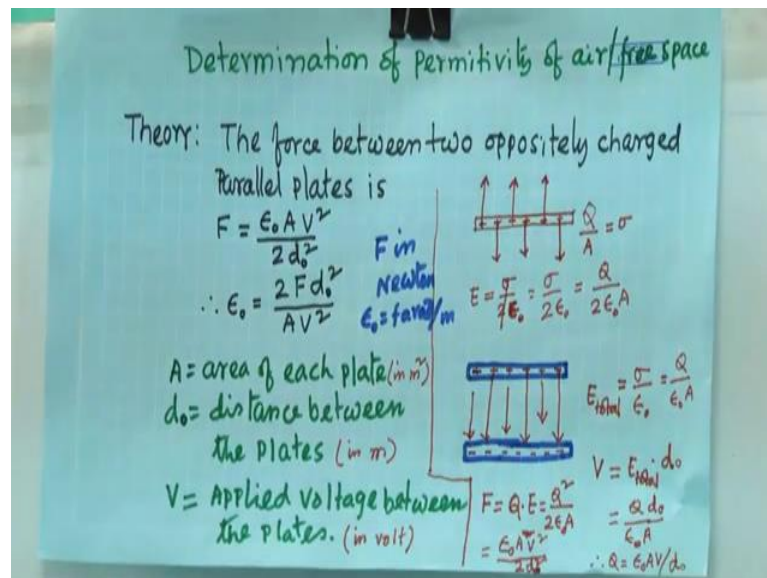 Determination of permitivity of air/free space
Theory: The force between two oppositely charged
Parallel plates is
F = ε₀AV²/2d₀²
∴ ε₀ = 2Fd₀²/AV²
F in
Newton
ε₀ = farad/m
A = area of each plate (in m²)
d₀ = distance between
the plates (in m)
V = Applied voltage between
the plates. (in volt)
Q/A = σ
E = σ/2ε₀ = σ/2ε₀ = Q/2ε₀A
E_total = σ/ε₀ = Q/ε₀A
V = E_total · d₀
= Q d₀/ε₀A
∴ Q = ε₀AV/d₀
F = Q·E = Q²/2ε₀A
= ε₀AV²/2d₀²